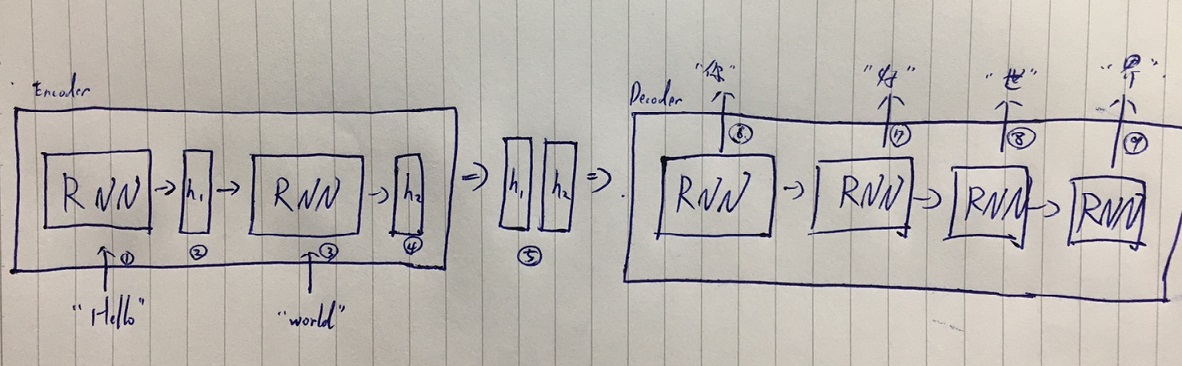 Encoder
RNN
h₁
RNN
h₂
① ② ③ ④
"Hello"
"world"
h₁ h₂
⑤
Decoder
"你" "好" "世" "界"
⑥ ⑦ ⑧ ⑨
RNN RNN RNN RNN